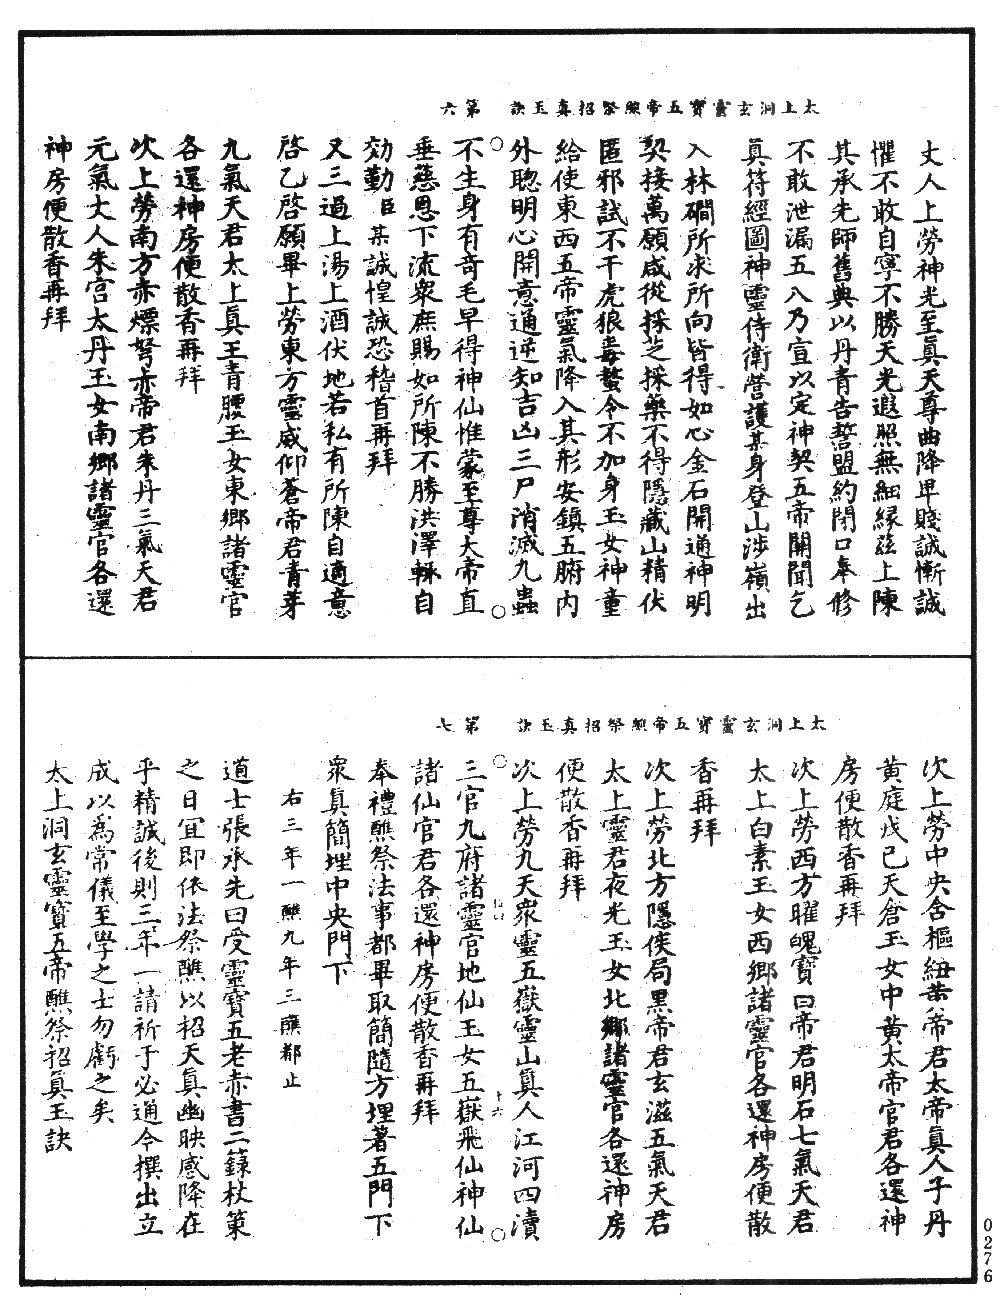 太上洞玄靈寶五帝醮祭招真玉訣　第六
丈人上勞神光至真天尊曲降卑賤誠慚誠
懼不敢自寧不勝天光遐照無細緣兹上陳
其承先師舊典以丹青告誓盟約閉口奉修
不敢泄漏五八乃宣以定神契五帝開聞乞
真符經圖神靈侍衛營護某身登山涉嶺出
入林磵所求所向皆得如心金石開通神明
契接萬願咸從採芝採藥不得隱藏山精伏
匿邪試不干虎狼毒螫令不加身玉女神童
給使東西五帝靈氣降入其形安鎮五腑内
外聰明心開意通逆知吉凶三尸消滅九蟲
不生身有奇毛早得神仙惟蒙至尊大帝直
垂慈恩下流衆庶賜如所陳不勝洪澤輙自
効勤臣某誠惶誠恐稽首再拜
又三過上湯上酒伏地若私有所陳自適意
啓乞啓願畢上勞東方靈威仰蒼帝君青芽
九氣天君太上真王青腰玉女東鄉諸靈官
各還神房便散香再拜
次上勞南方赤熛弩赤帝君朱丹三氣天君
元氣丈人朱宮太丹玉女南鄉諸靈官各還
神房便散香再拜
太上洞玄靈寶五帝醮祭招真玉訣　第七
次上勞中央含樞紐黃帝君太帝真人子丹
黃庭戊己天倉玉女中黃太帝官君各還神
房便散香再拜
次上勞西方曜魄寶白帝君明石七氣天君
太上白素玉女西鄉諸靈官各還神房便散
香再拜
次上勞北方隱侠局黑帝君玄滋五氣天君
太上靈君夜光玉女北鄉諸靈官各還神房
便散香再拜
次上勞九天衆靈五嶽靈山真人江河四瀆
三官九府諸靈官地仙玉女五嶽飛仙神仙
諸仙官君各還神房便散香再拜
奉禮醮祭法事都畢取簡隨方埋著五門下
衆真簡埋中央門下
右三年一醮九年三醮都止
道士張承先曰受靈寶五老赤書二籙杖策
之日宜即依法祭醮以招天真幽映感降在
乎精誠後則三年一請祈于必通今撰出立
成以為常儀至學之士勿虧之矣
太上洞玄靈寶五帝醮祭招真玉訣
十六
0276